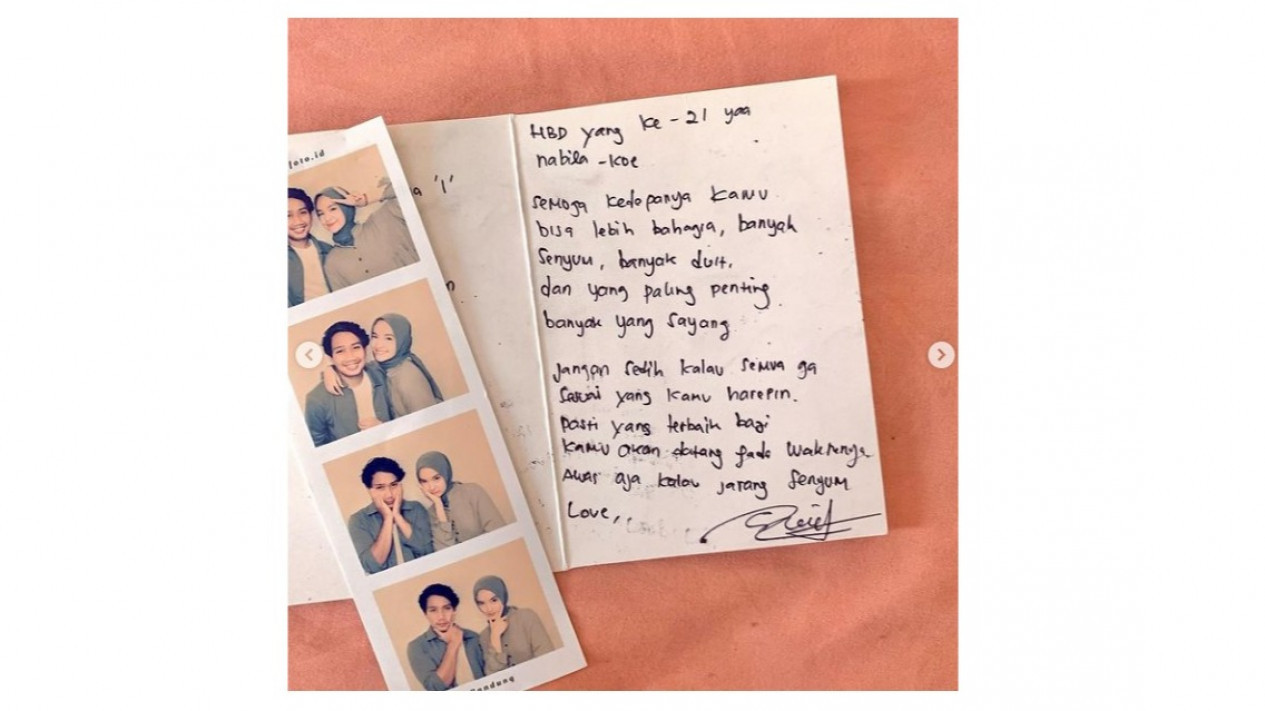 foto.id
a '1'
n
HBD yang ke - 21 yaa
nabila - koe
semoga kedepanya kamu
bisa lebih bahagia, banyak
senyum, banyak duit.
dan yang paling penting
banyak yang sayang
jangan sedih kalau semua ga
sesuai yang kamu harepin.
pasti yang terbaik bagi
kamu akan datang pada waktunya
Awas aja kalau jarang senyum
Love,
andung